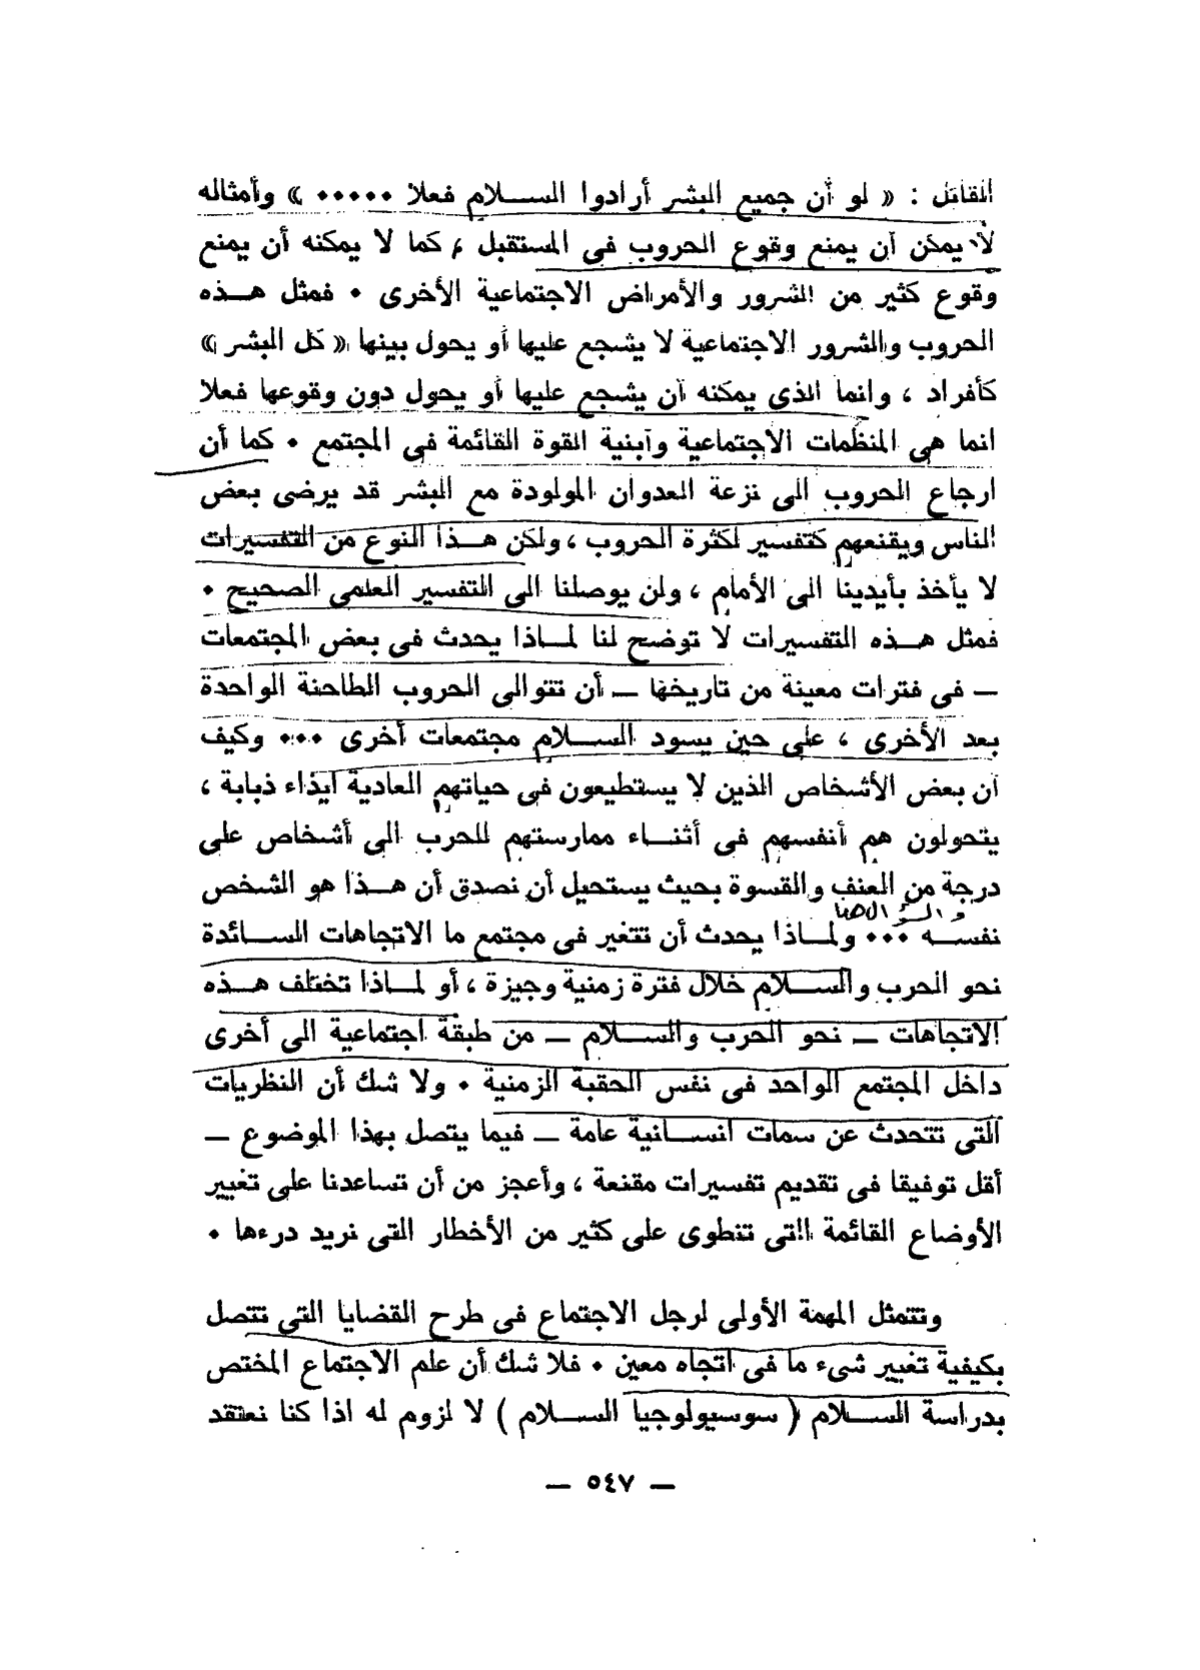 القائل : « لو أن جميع البشر أرادوا الســلام فعلا ٠٠٠٠٠ » وأمثاله
لا يمكن أن يمنع وقوع الحروب فى المستقبل ، كما لا يمكنه أن يمنع
وقوع كثير من الشرور والأمراض الاجتماعية الأخرى ٠ فمثل هــذه
الحروب والشرور الاجتماعية لا يشجع عليها أو يحول بينها « كل البشر »
كأفراد ، وانما الذى يمكنه أن يشجع عليها أو يحول دون وقوعها فعلا
انما هى المنظمات الاجتماعية وأبنية القوة القائمة فى المجتمع ٠ كما أن
ارجاع الحروب الى نزعة العدوان المولودة مع البشر قد يرضى بعض
الناس ويقنعهم كتفسير لكثرة الحروب ، ولكن هــذا النوع من التفسيرات
لا يأخذ بأيدينا الى الأمام ، ولن يوصلنا الى التفسير العلمى الصحيح ٠
فمثل هــذه التفسيرات لا توضح لنا لمــاذا يحدث فى بعض المجتمعات
— فى فترات معينة من تاريخها — أن تتوالى الحروب الطاحنة الواحدة
بعد الأخرى ، على حين يسود الســلام مجتمعات أخرى ٠٠٠ وكيف
أن بعض الأشخاص الذين لا يستطيعون فى حياتهم العادية ايذاء ذبابة ،
يتحولون هم أنفسهم فى أثنــاء ممارستهم للحرب الى أشخاص على
درجة من العنف والقسوة بحيث يستحيل أن نصدق أن هــذا هو الشخص
نفســه ٠٠٠ ولمــاذا يحدث أن تتغير فى مجتمع ما الاتجاهات الســائدة
نحو الحرب والســلام خلال فترة زمنية وجيزة ، أو لمــاذا تختلف هــذه
الاتجاهات — نحو الحرب والســلام — من طبقة اجتماعية الى أخرى
داخل المجتمع الواحد فى نفس الحقبة الزمنية ٠ ولا شك أن النظريات
التى تتحدث عن سمات انســانية عامة — فيما يتصل بهذا الموضوع —
أقل توفيقا فى تقديم تفسيرات مقنعة ، وأعجز من أن تساعدنا على تغيير
الأوضاع القائمة التى تنطوى على كثير من الأخطار التى نريد درءها ٠
وتتمثل المهمة الأولى لرجل الاجتماع فى طرح القضايا التى تتصل
بكيفية تغيير شىء ما فى اتجاه معين ٠ فلا شك أن علم الاجتماع المختص
بدراسة الســلام ( سوسيولوجيا الســلام ) لا لزوم له اذا كنا نعتقد
— ٥٤٧ —